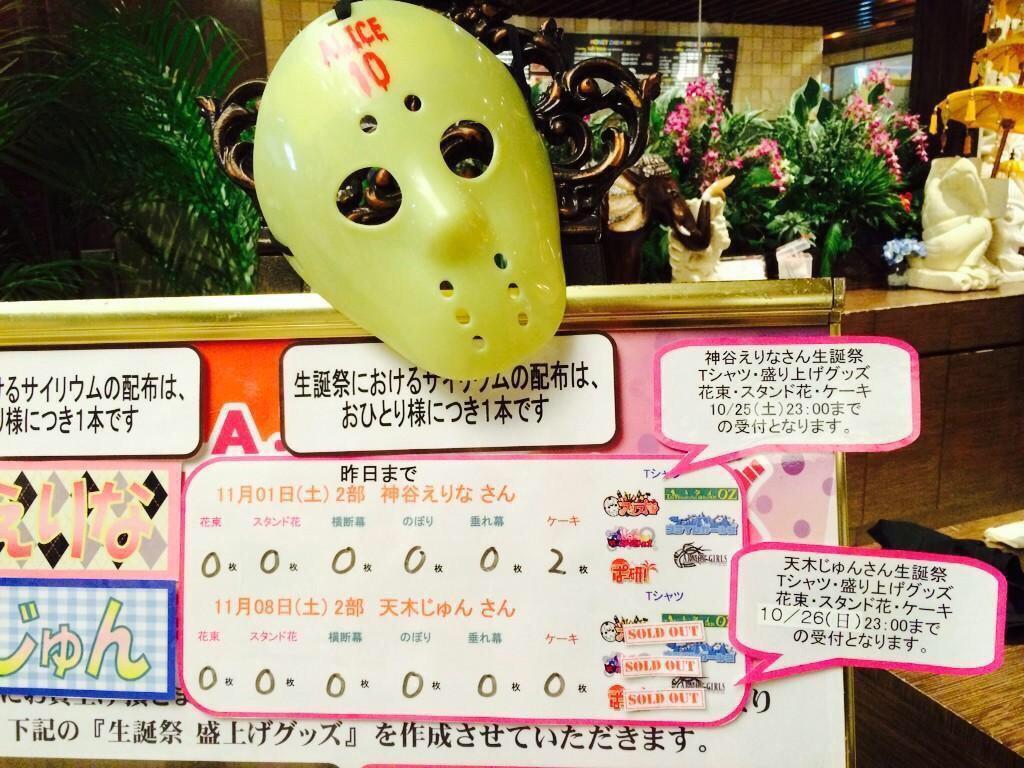 ALICE
10
けるサイリウムの配布は、
様につき1本です
生誕祭におけるサイリウムの配布は、
おひとり様につき1本です
神谷えりなさん生誕祭
Tシャツ・盛り上げグッズ
花束・スタンド花・ケーキ
10/25(土)23:00まで
の受付となります。
A.
えりな
じゅん
昨日まで
Tシャツ
11月01日(土) 2部 神谷えりな さん
花束 スタンド花 横断幕 のぼり 垂れ幕 ケーキ
0枚 0枚 0枚 0枚 0枚 2枚
OZ
GIRLS
11月08日(土) 2部 天木じゅん さん
Tシャツ
花束 スタンド花 横断幕 のぼり 垂れ幕 ケーキ
0枚 0枚 0枚 0枚 0枚 0枚
SOLD OUT
SOLD OUT
GIRLS
SOLD OUT
天木じゅんさん生誕祭
Tシャツ・盛り上げグッズ
花束・スタンド花・ケーキ
10/26(日)23:00まで
の受付となります。
り
下記の『生誕祭 盛上げグッズ』を作成させていただきます。